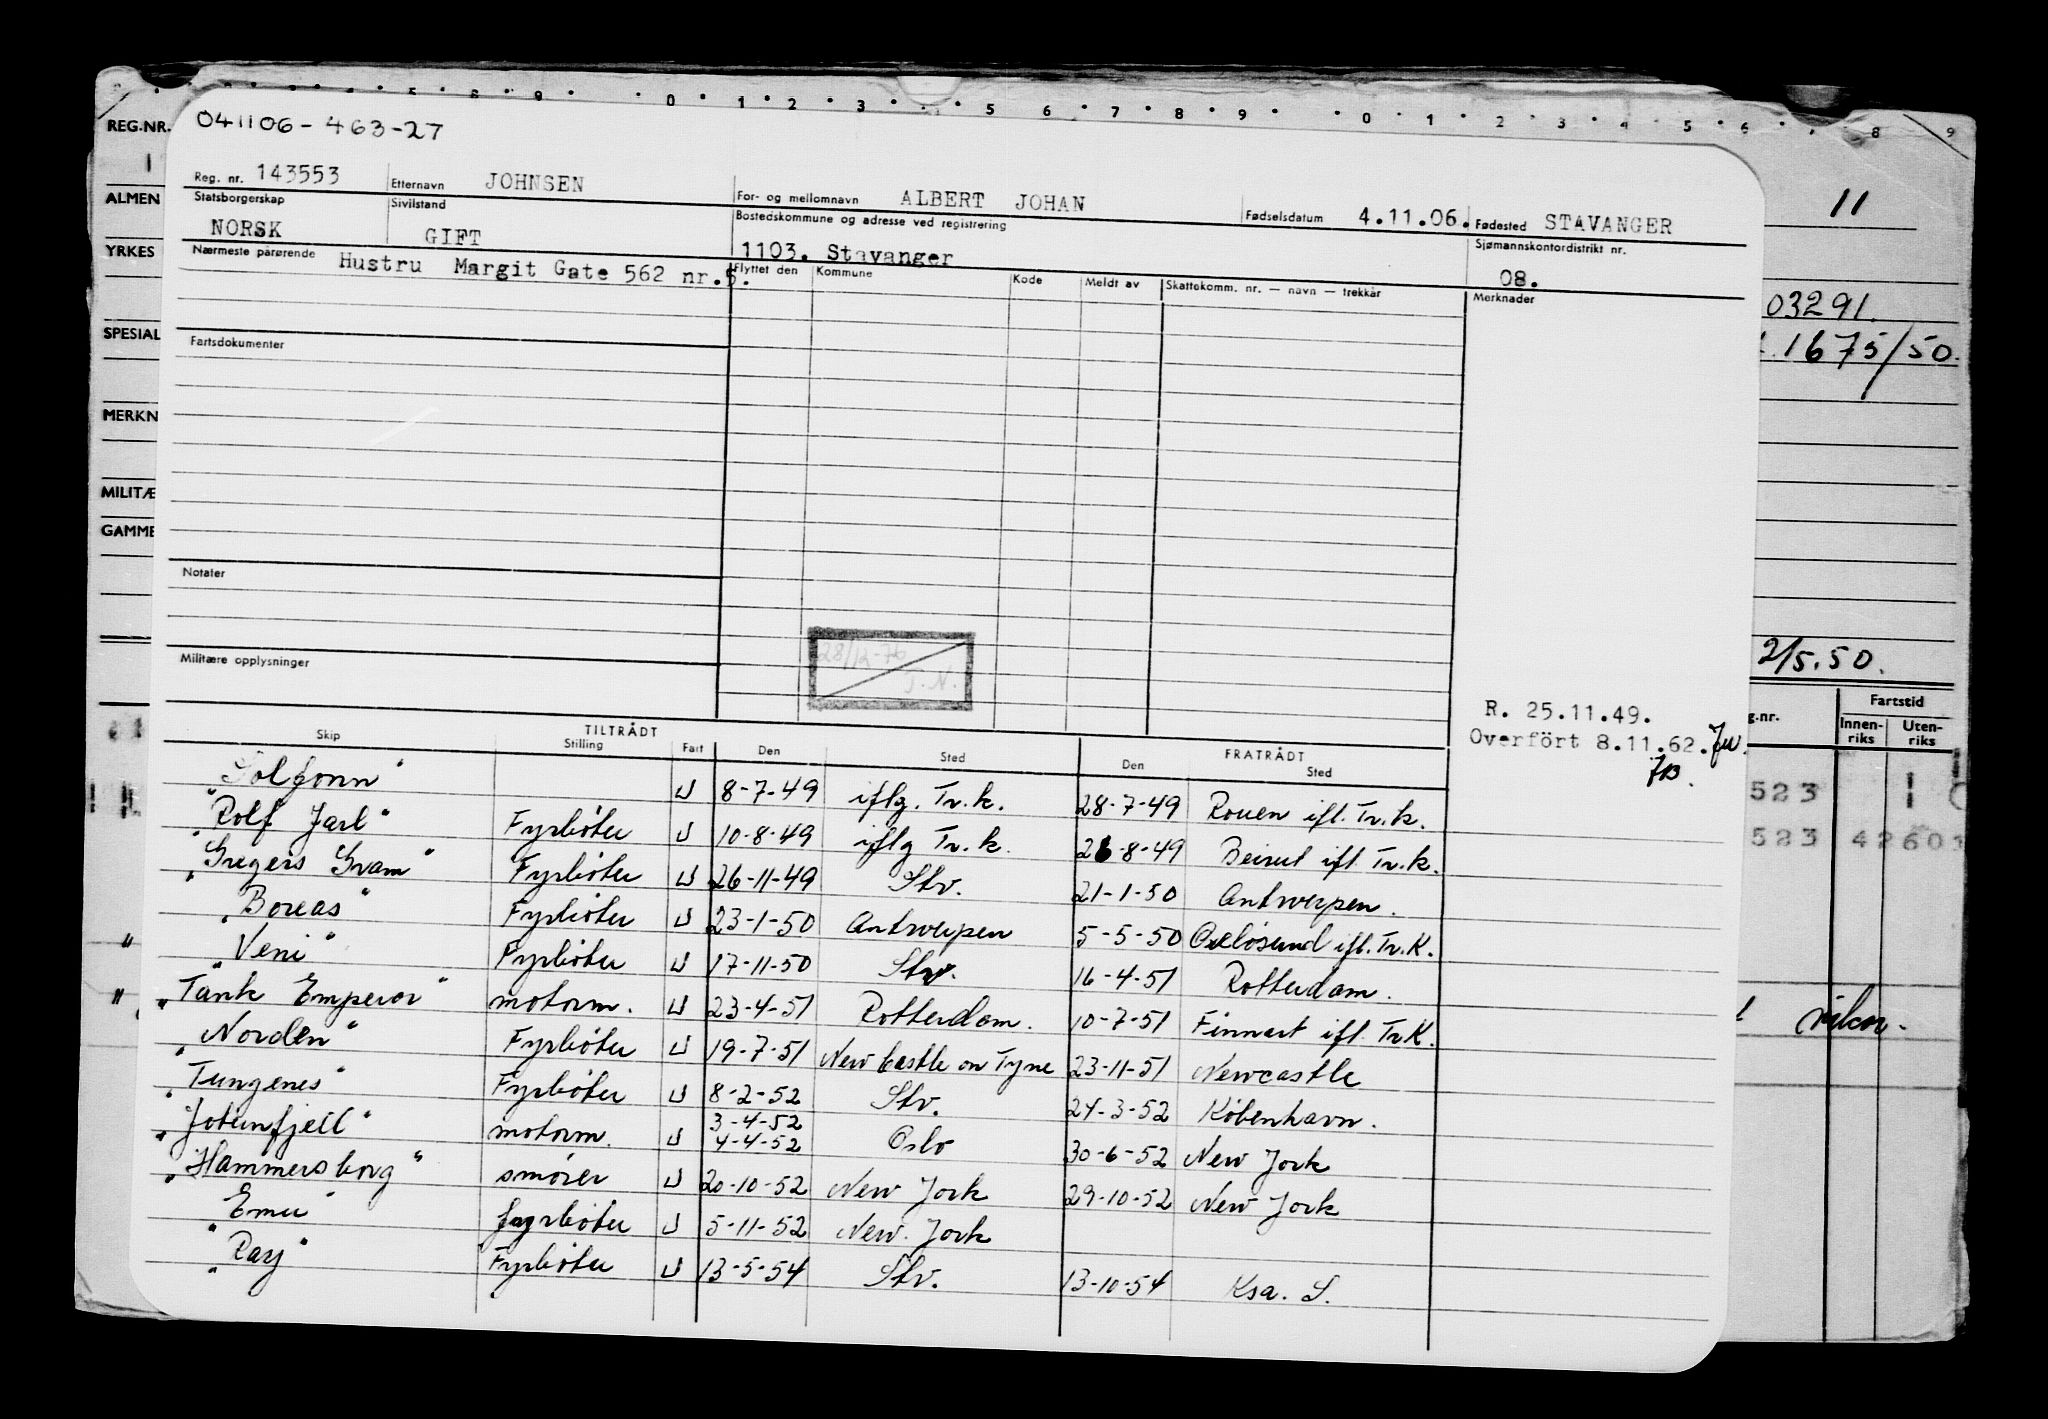 041106-463-27
Reg. nr. 143553 Etternavn JOHNSEN For- og mellomnavn ALBERT JOHAN Fødselsdatum 4.11.06. Fødested STAVANGER
Statsborgerskap NORSK Sivilstand GIFT Bostedskommune og adresse ved registrering 1103. Stavanger Sjømannskontordistrikt nr. 08.
Nærmeste pårørende Hustru Margit Gate 562 nr.5. Flyttet den Kommune Kode Meldt av Skattekomm. nr. — navn — trekkår Merknader
Fartsdokumenter
Notater
Militære opplysninger
28/12-76
J.N.
R. 25.11.49.
Overfört 8.11.62.
TILTRÅDT FRATRÅDT
Skip Stilling Fart Den Sted Den Sted
"Solfonn" U 8-7-49 iflg. Tr.k. 28-7-49 Rouen ifl. Tr.k.
"Rolf Jarl" Fyrbøter U 10-8-49 iflg Tr.k. 26-8-49 Beirut ifl Tr.k.
"Gregers Gram" Fyrbøter U 26-11-49 Stv. 21-1-50 Antwerpen.
"Boreas" Fyrbøter U 23-1-50 Antwerpen 5-5-50 Oxeløsund ifl. Tr.K.
"Veni" Fyrbøter U 17-11-50 Stv. 16-4-51 Rotterdam.
"Tank Emperor" motorm. U 23-4-51 Rotterdam. 10-7-51 Finnart ifl. Tr.K.
"Norden" Fyrbøter U 19-7-51 New Castle on Tyne 23-11-51 Newcastle
"Tungenes" Fyrbøter U 8-2-52 Stv. 24-3-52 København.
"Jotunfjell" motorm. U 3-4-52 4-4-52 Oslo 30-6-52 New York
"Hammersborg" smører U 20-10-52 New York 29-10-52 New York
"Emu" fyrbøter U 5-11-52 New York
"Ray" Fyrbøter U 13-5-54 Stv. 13-10-54 Ksa. S.
REG.NR.
ALMEN
YRKES
SPESIAL
MERKN
MILITÆ
GAMME
11
03291.
1675/50.
2/5.50.
g.nr. Fartstid
Innen-riks Uten-riks
523
523 42601